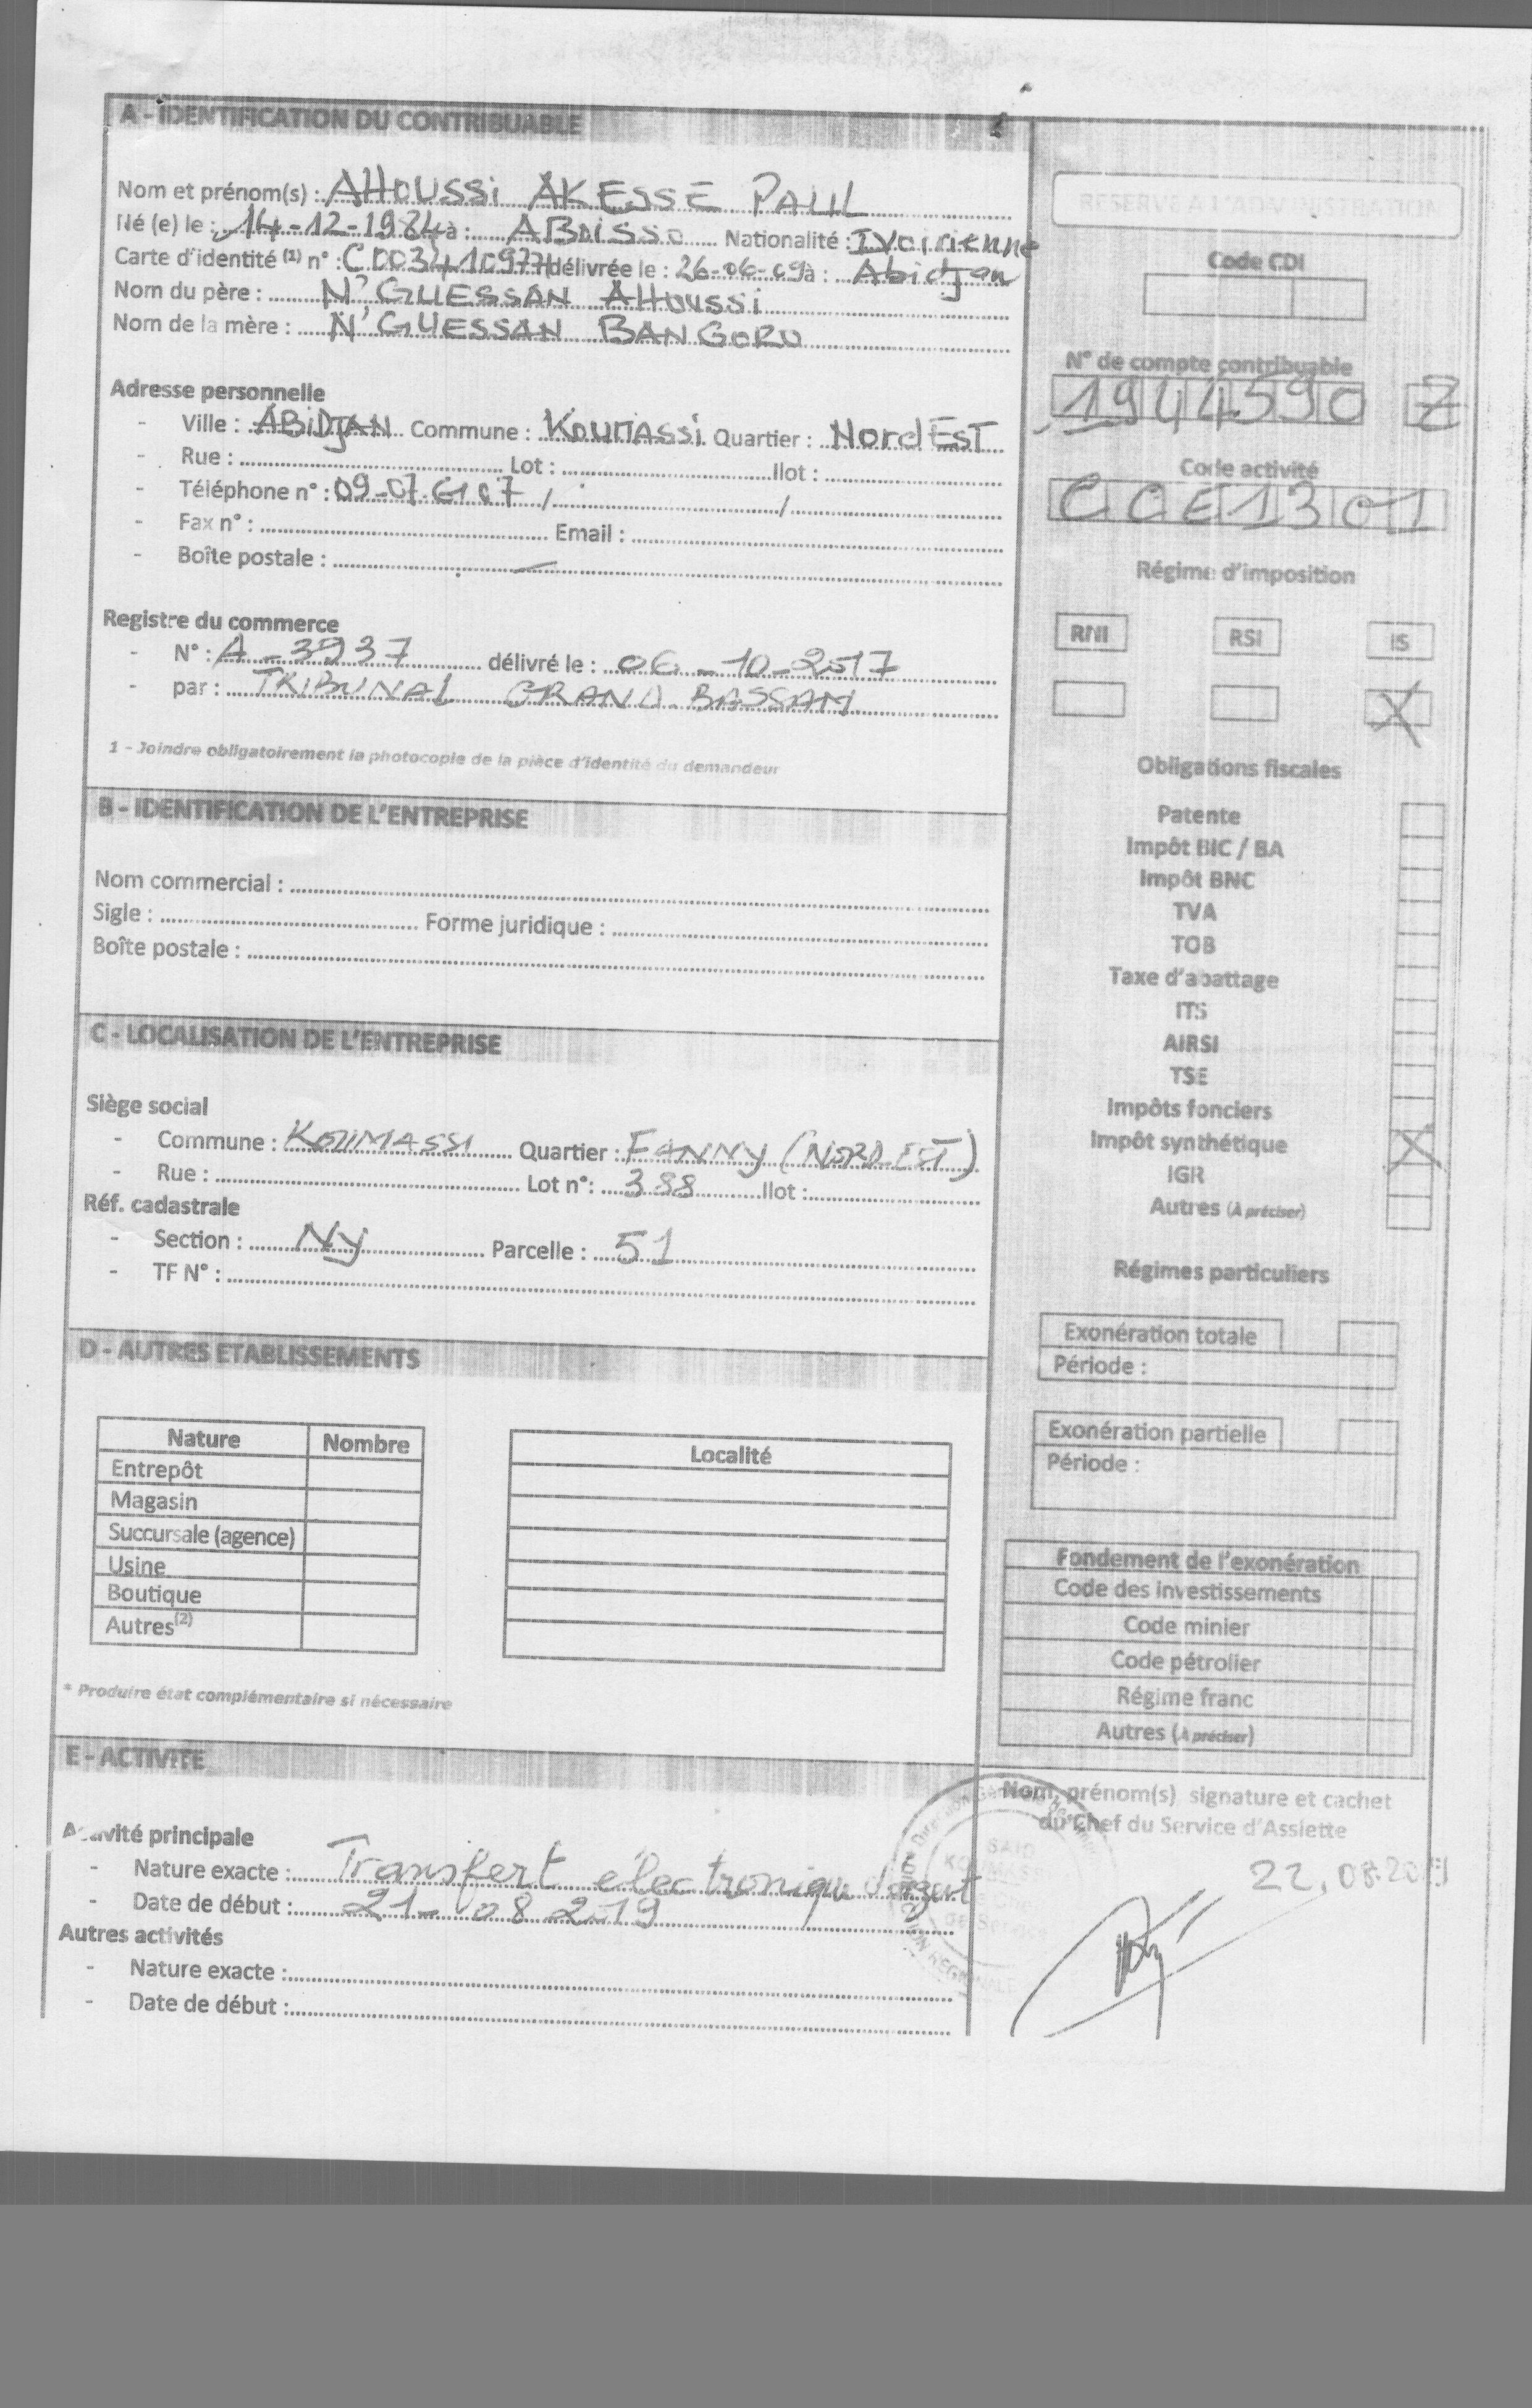 A - IDENTIFICATION DU CONTRIBUABLE
Nom et prénom(s) : AHOUSSI AKESSE PAUL
Né (e) le : 14-12-1984 à : ABOISSO Nationalité : Ivoirienne
Carte d'identité (1) n° : C003410977 délivrée le : 26-06-09 à : Abidjan
Nom du père : N'GUESSAN AHOUSSI
Nom de la mère : N'GUESSAN BANGORO
Adresse personnelle
- Ville : ABIDJAN Commune : KOUMASSI Quartier : Nord EST
- Rue : Lot : Ilot :
- Téléphone n° : 09-07-61 07 / /
- Fax n° : Email :
- Boîte postale :
Registre du commerce
- N° : A-3937 délivré le : 06-10-2017
- par : TRIBUNAL GRAND BASSAM
1 - Joindre obligatoirement la photocopie de la pièce d'identité du demandeur
B - IDENTIFICATION DE L'ENTREPRISE
Nom commercial :
Sigle : Forme juridique :
Boîte postale :
C - LOCALISATION DE L'ENTREPRISE
Siège social
- Commune : KOUMASSI Quartier : FANNY (NORD EST)
- Rue : Lot n° : 388 Ilot :
Réf. cadastrale
- Section : NY Parcelle : 51
- TF N° :
D - AUTRES ETABLISSEMENTS
Nature Nombre
Entrepôt
Magasin
Succursale (agence)
Usine
Boutique
Autres(2)
Localité
* Produire état complémentaire si nécessaire
E - ACTIVITE
Activité principale
- Nature exacte : Transfert électronique d'argent
- Date de début : 21-08 2019
Autres activités
- Nature exacte :
- Date de début :
RESERVE A L'ADMINISTRATION
Code CDI
N° de compte contribuable
1944590 Z
Code activité
CCE1301
Régime d'imposition
RNI RSI IS
X
Obligations fiscales
Patente
Impôt BIC / BA
Impôt BNC
TVA
TOB
Taxe d'abattage
ITS
AIRSI
TSE
Impôts fonciers
Impôt synthétique X
IGR
Autres (À préciser)
Régimes particuliers
Exonération totale
Période :
Exonération partielle
Période :
Fondement de l'exonération
Code des investissements
Code minier
Code pétrolier
Régime franc
Autres (À préciser)
Nom, prénom(s) signature et cachet
du Chef du Service d'Assiette
22.08.2019